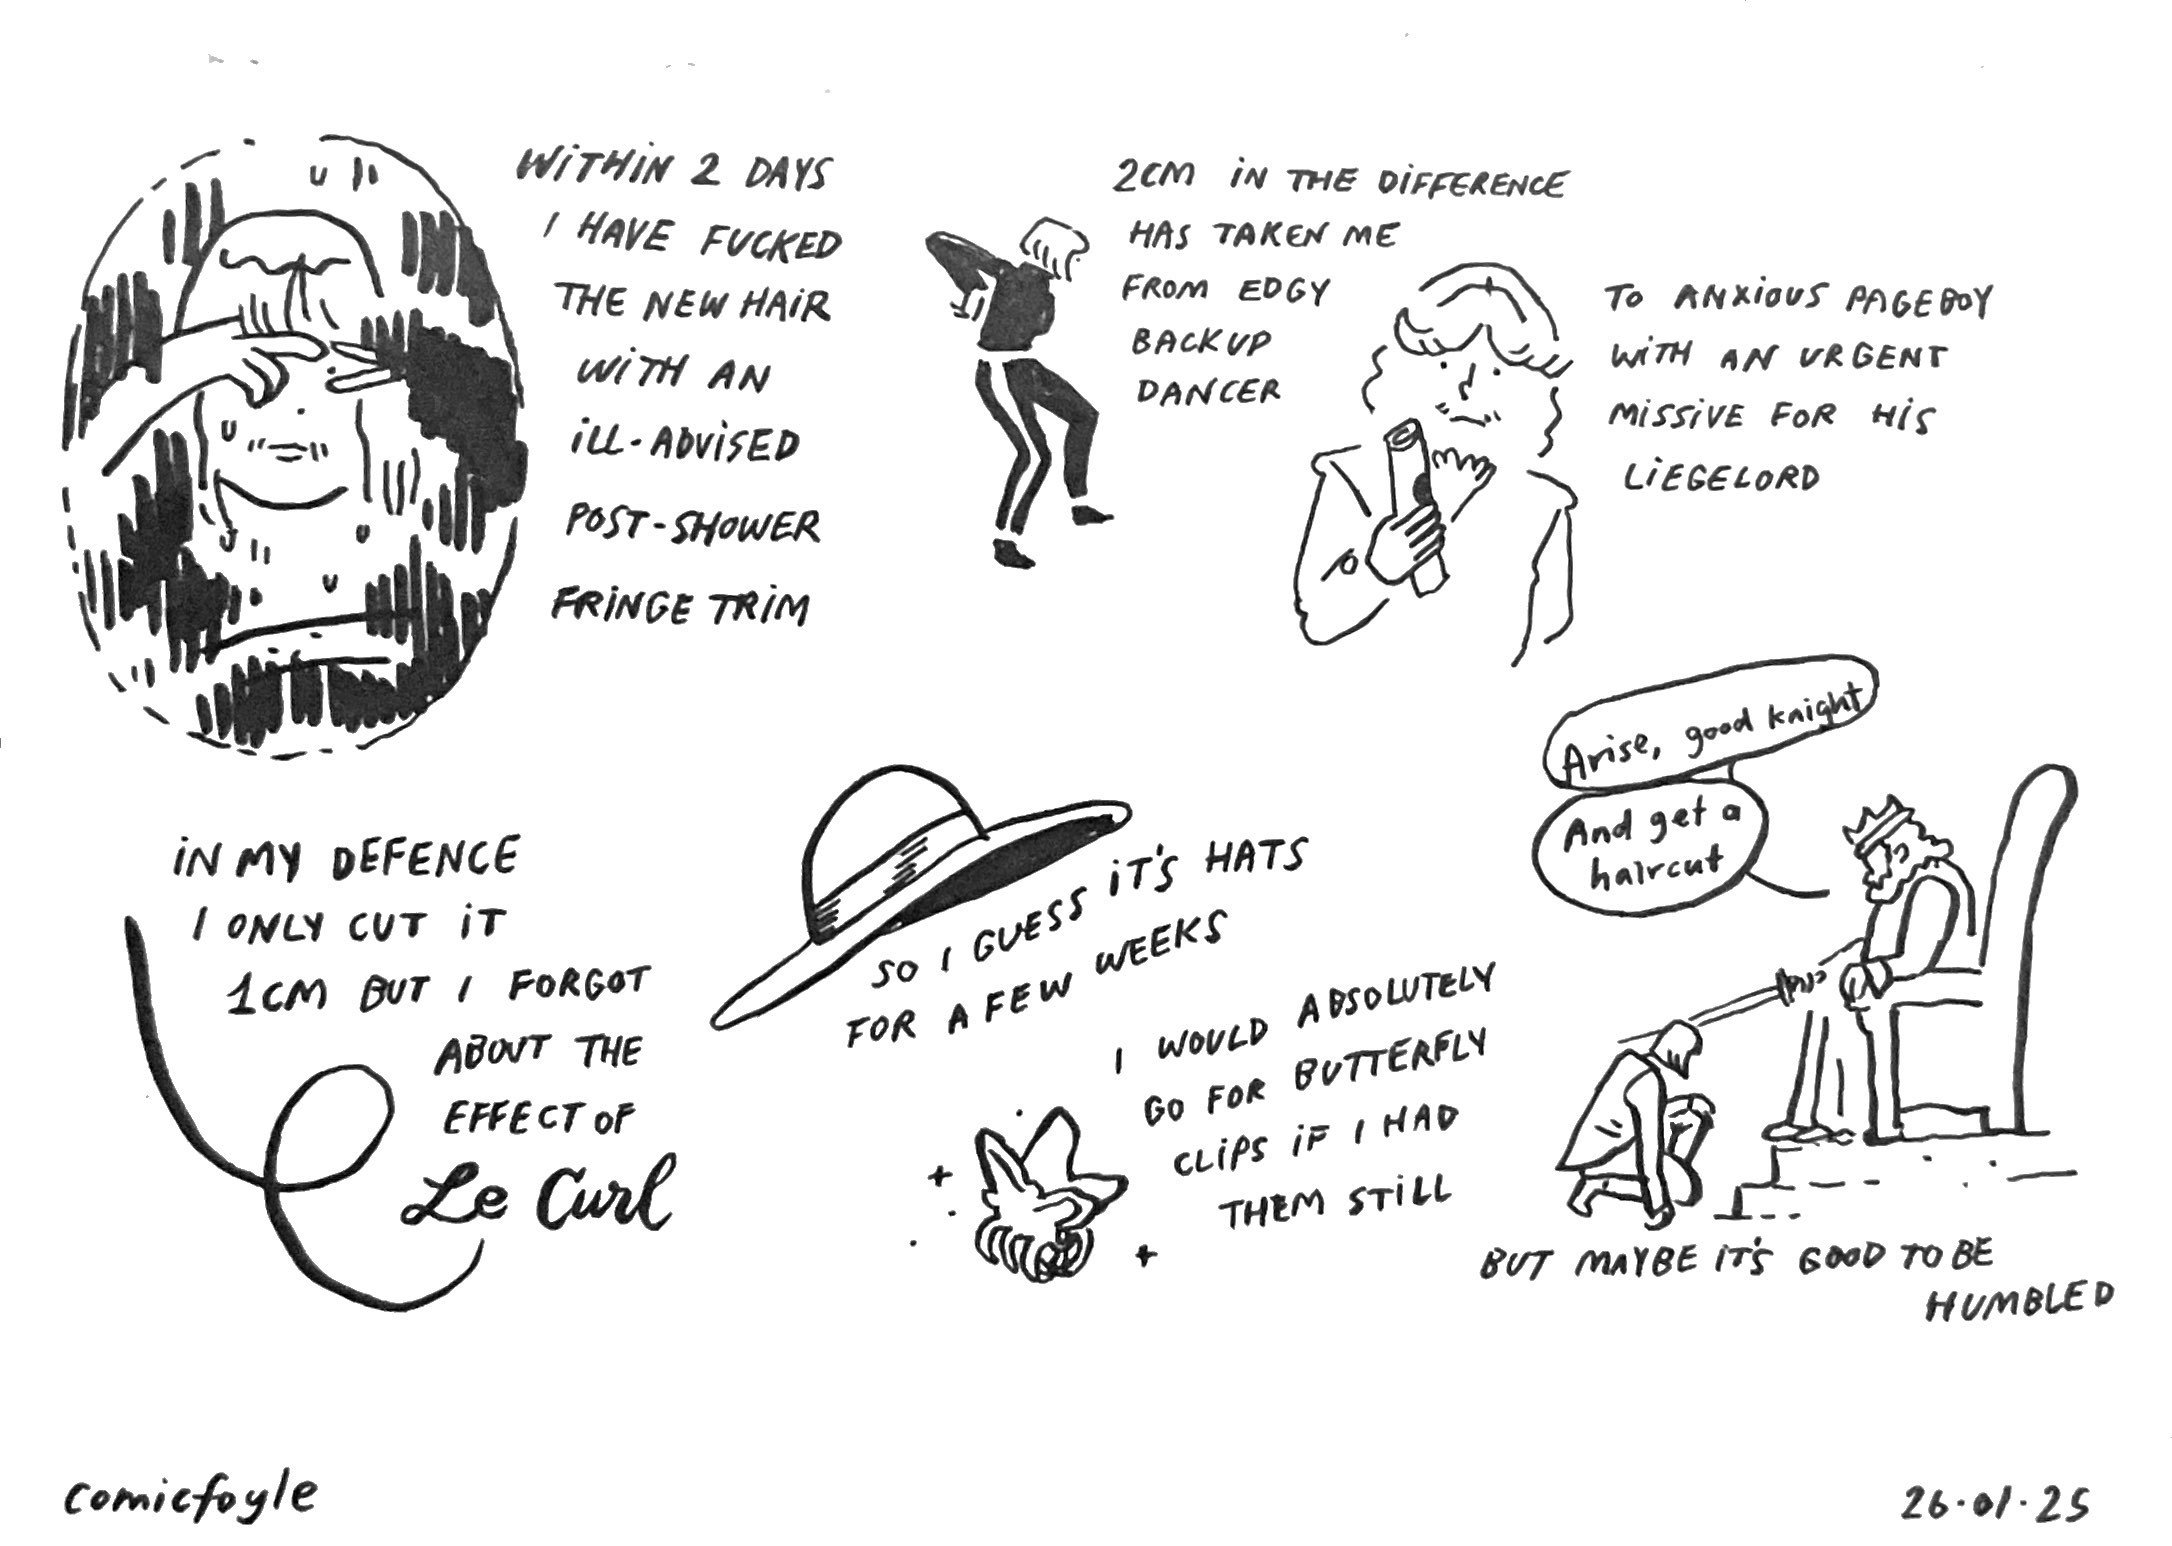 WITHIN 2 DAYS
I HAVE FUCKED
THE NEW HAIR
WITH AN
ILL-ADVISED
POST-SHOWER
FRINGE TRIM
2CM IN THE DIFFERENCE
HAS TAKEN ME
FROM EDGY
BACKUP
DANCER
TO ANXIOUS PAGEBOY
WITH AN URGENT
MISSIVE FOR HIS
LIEGELORD
IN MY DEFENCE
I ONLY CUT IT
1CM BUT I FORGOT
ABOUT THE
EFFECT OF
Le Curl
SO I GUESS IT'S HATS
FOR A FEW WEEKS
I WOULD ABSOLUTELY
GO FOR BUTTERFLY
CLIPS IF I HAD
THEM STILL
Arise, good knight
And get a
haircut
BUT MAYBE IT'S GOOD TO BE
HUMBLED
comicfoyle
26.01.25